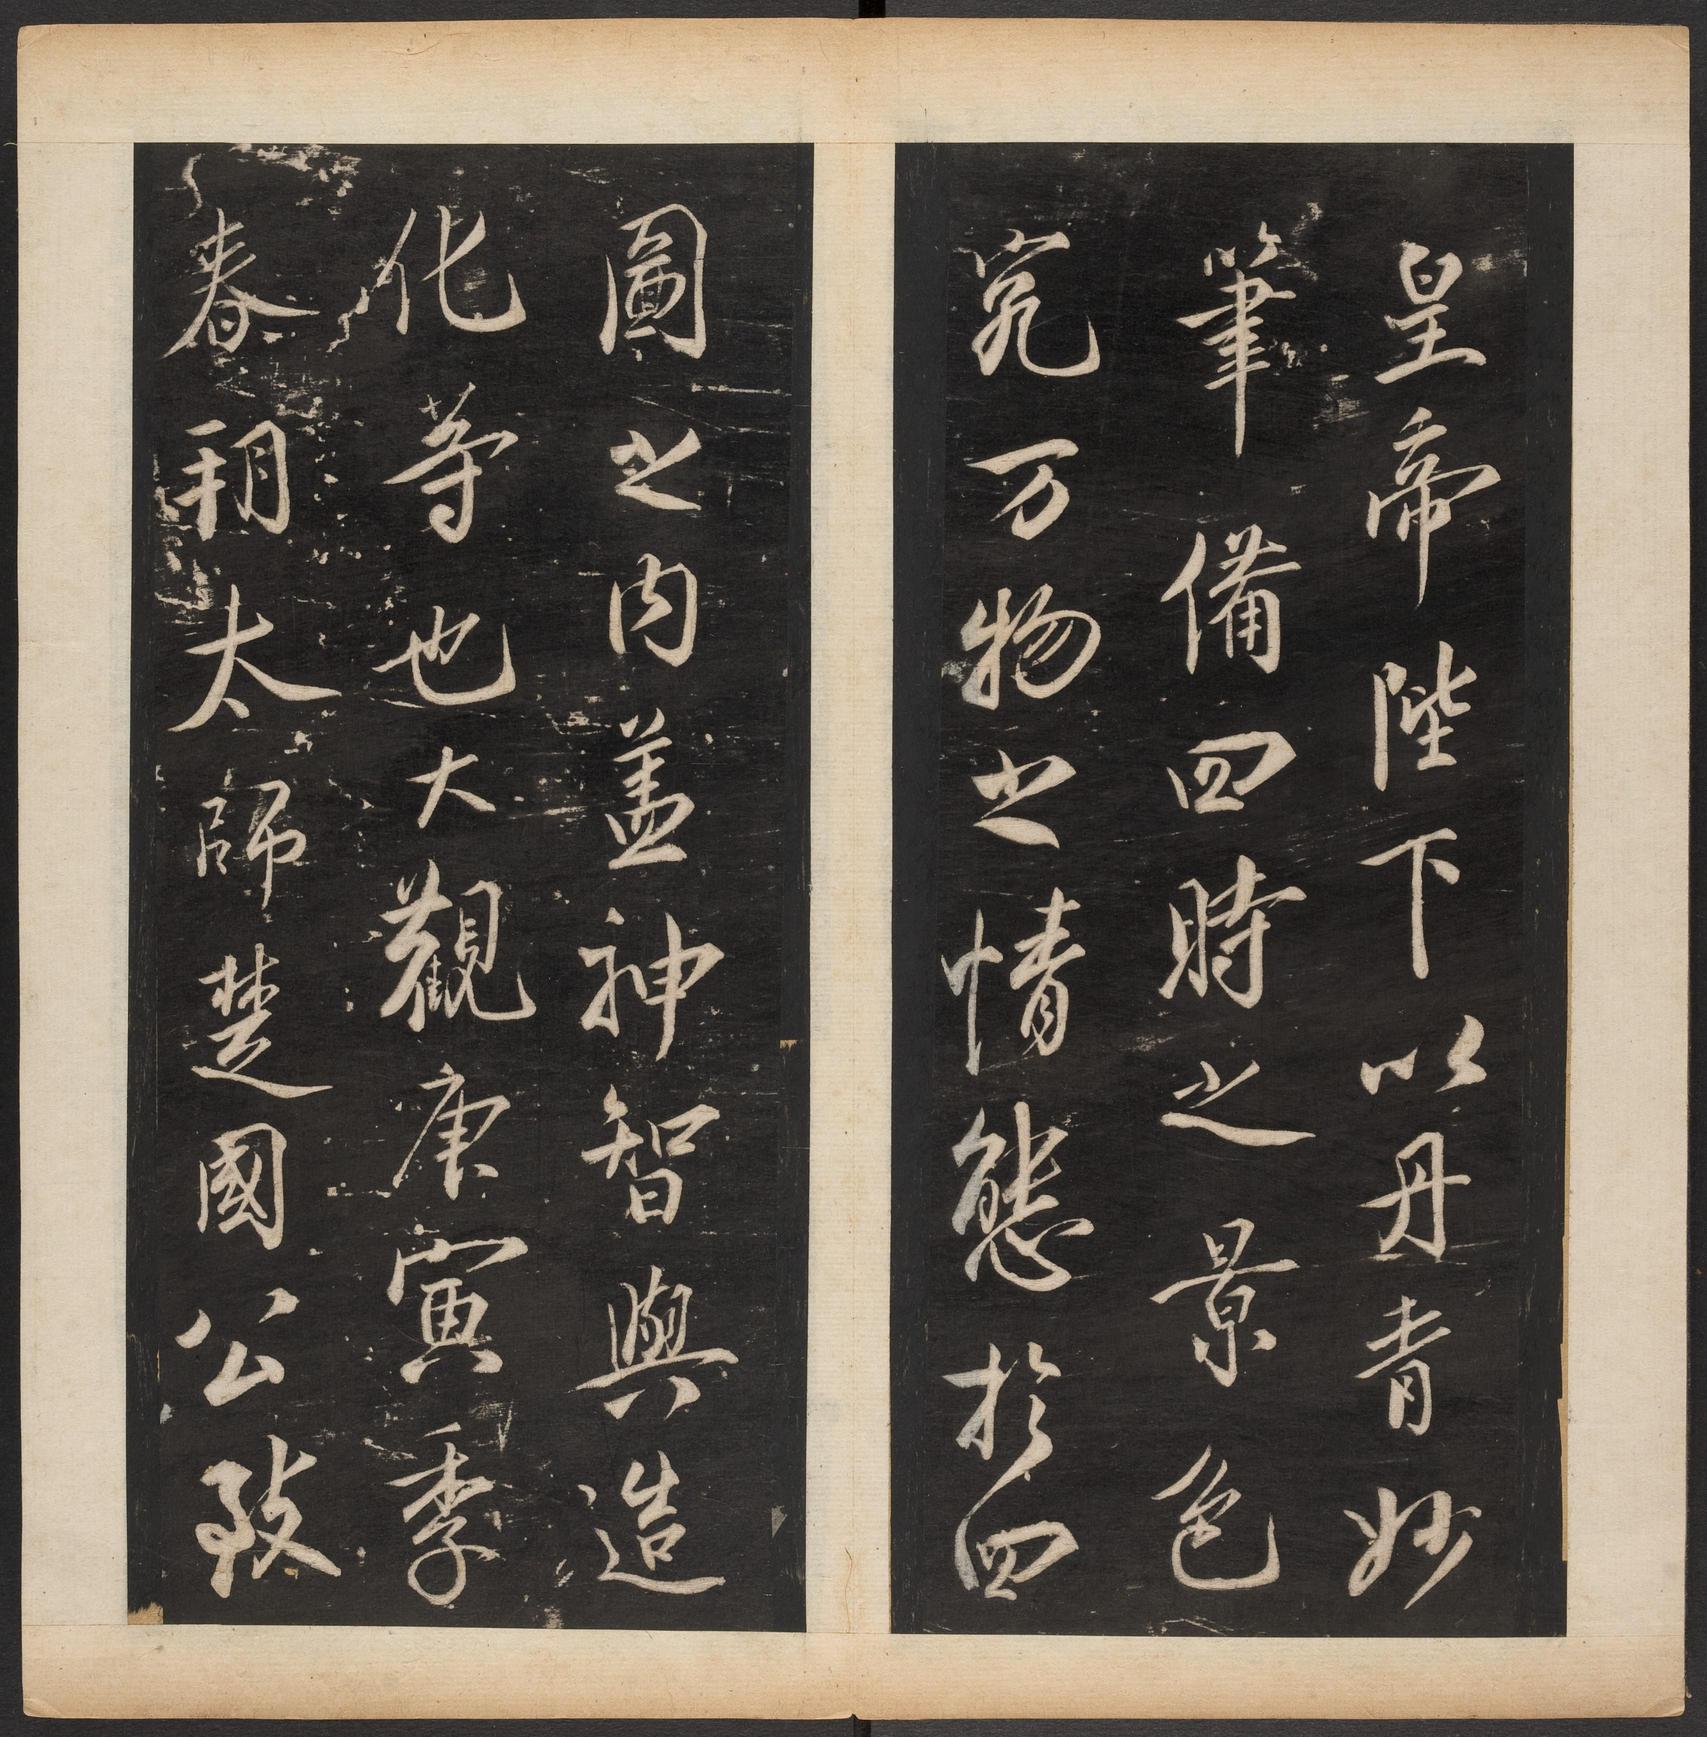 皇帝陛下以丹青妙
筆備四時之景色
究万物之情態於四
圖之内盖神智與造
化等也大觀庚寅季
春朔太師楚國公致